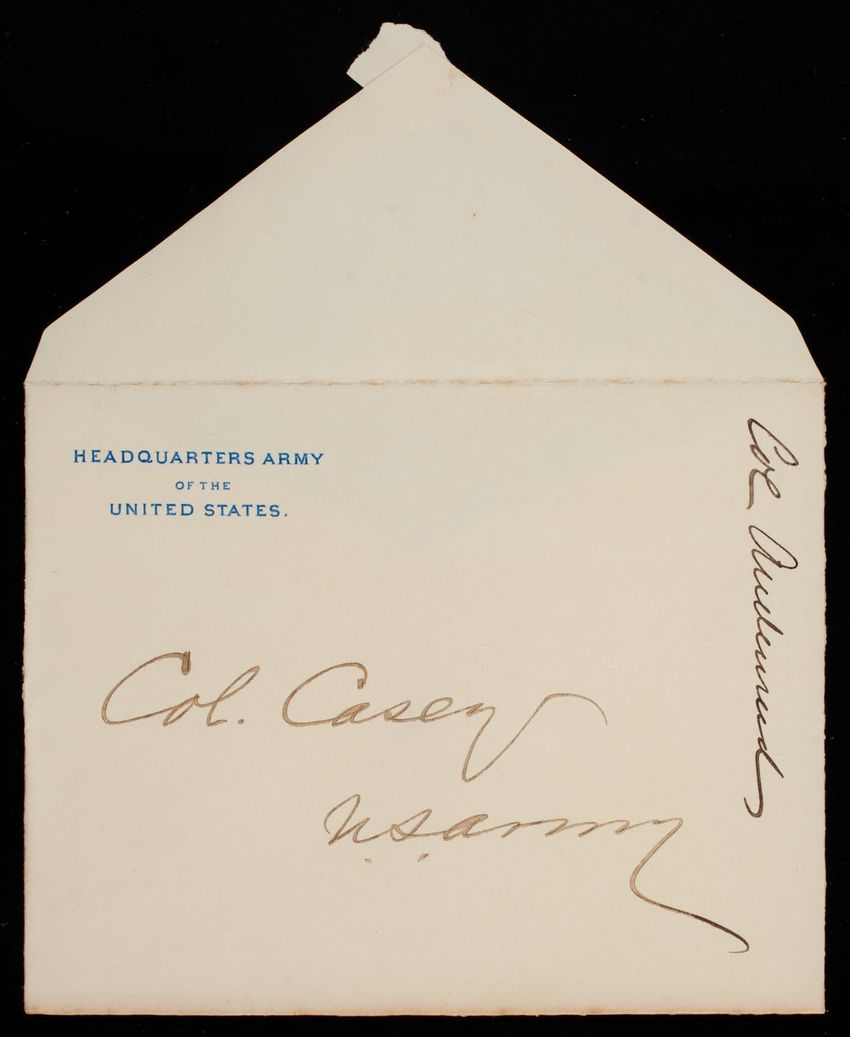 HEADQUARTERS ARMY
OF THE
UNITED STATES.
Col. Casey
U.S. Army
Col Audenried